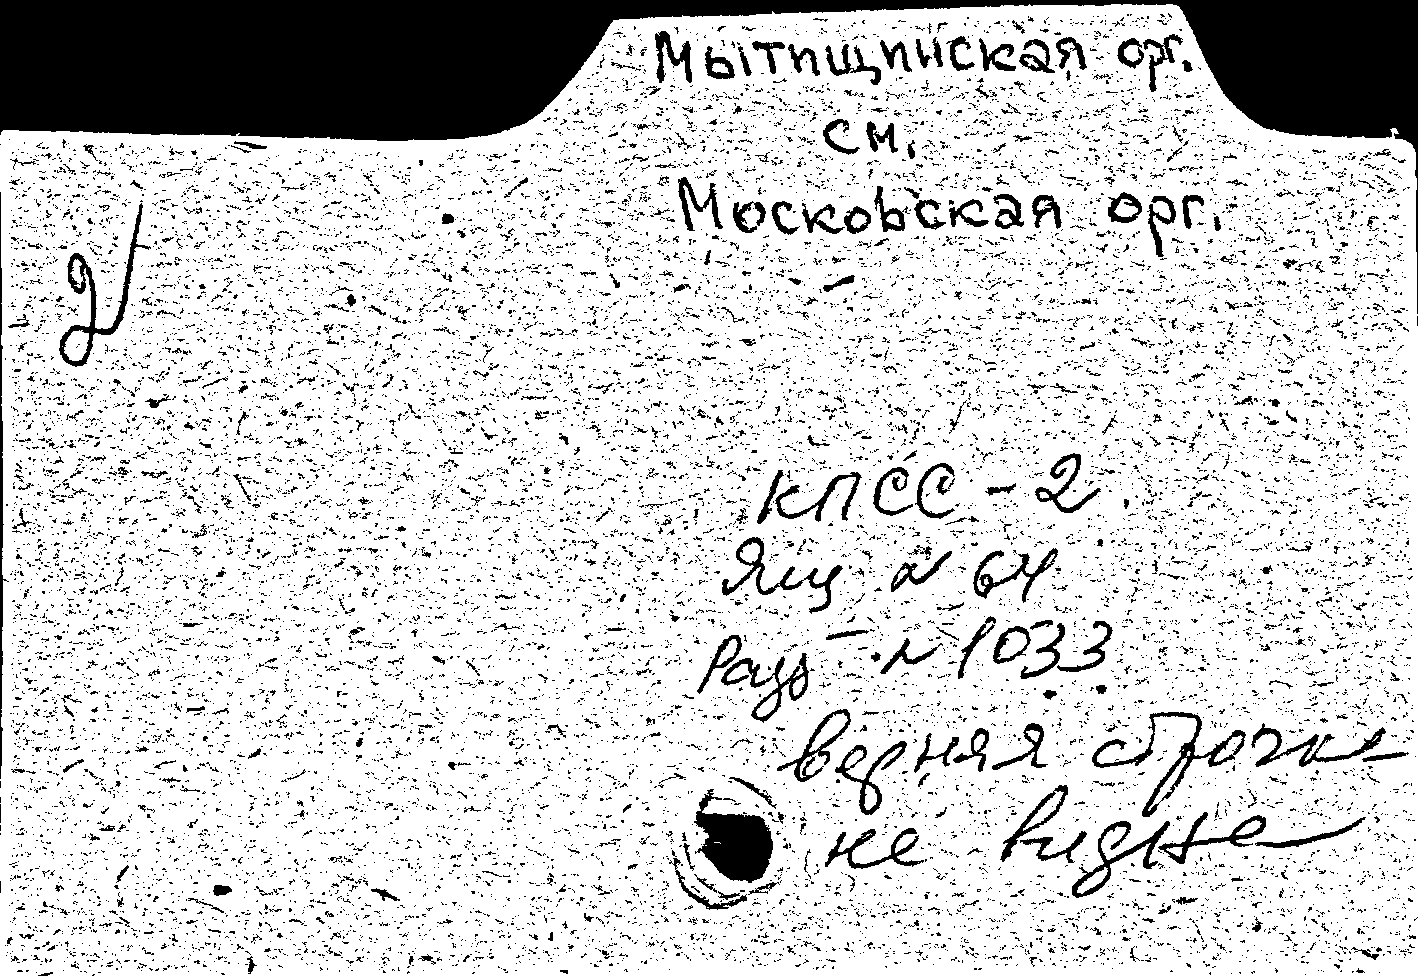 Мытищинская орг.
см.
Московская орг.
2
КПСС - 2.
Ящ № 64
Разр № 1033
верняя строчка
не видна